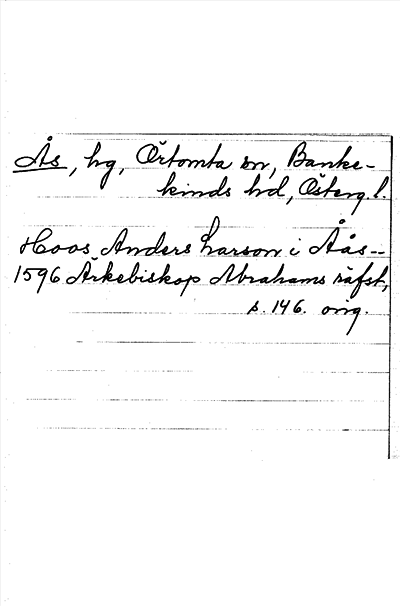 Ås, hg, Örtomta sn, Banke-
kinds hd, Österg.l.
Hoos Anders Larson i Åås --
1596 Ärkebiskop Abrahams räfst,
s. 146. orig.